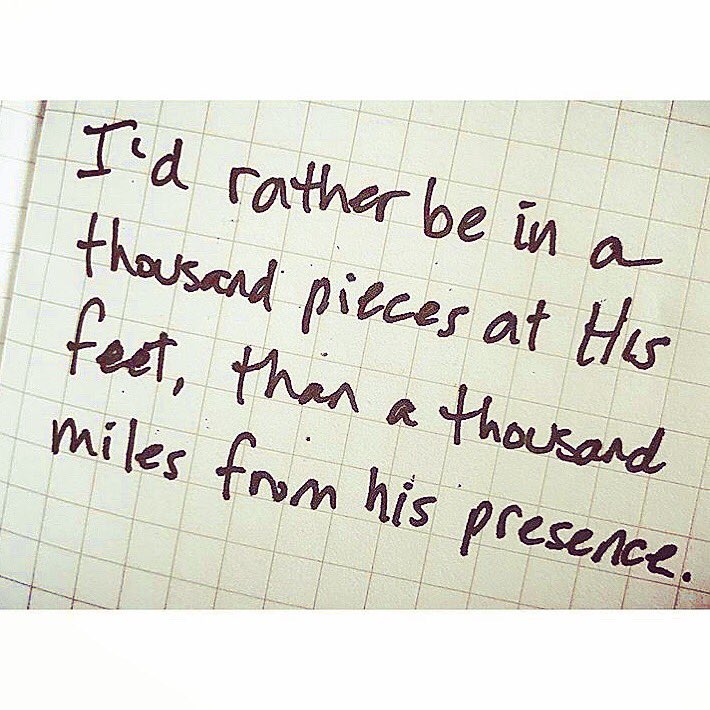 I'd rather be in a
thousand pieces at His
feet, than a thousand
miles from his presence.